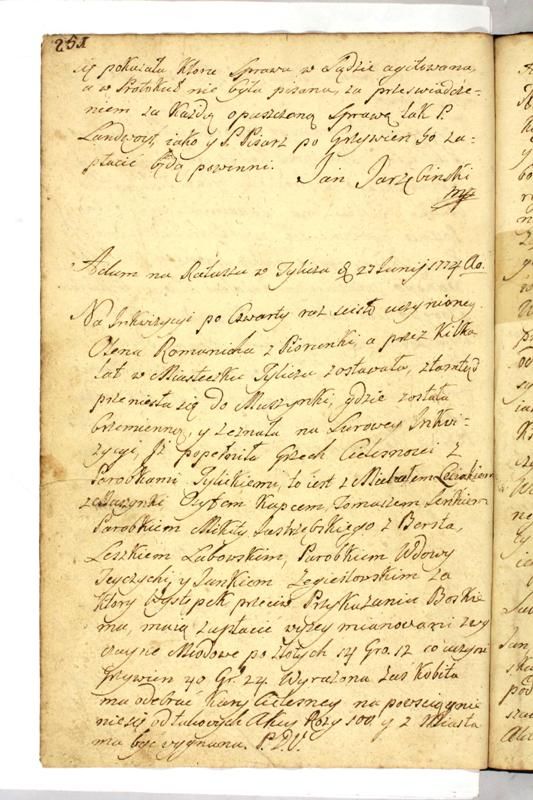 251
się pokaiała ktora Sprawa w Sądzie agitowana,
a w Protokuł nie była pisana, za przeswiadcze-
niem za Każdą opuszczoną Sprawę tak P.
Landwoyt, iako y P. Pisarz po Grzywien 50 za-
płacić będą powinni.
Jan Jarzębinski
mp
Actum na Ratuszu w Tyliczu d 27 Junij 1774 Ao.
Na Inkwizycyi po Czwarty raz scisło uczynioney.
Olena Romanicha z Piorunki, a przez kilka
lat w Miasteczku Tyliczu zostawała, ztamtąd
przeniesła się do Muszynki, gdzie została
brzemienną, y zeznała na Surowey Inkwi-
zycyi, Jż popełniła Grzech Cielesnosci z
Parobkami Tylickiemi, to iest z Michałem
z Muszynki Kapcem, Tomaszem
Parobkiem Mikity Jastrzębskiego z Bersta,
Leszkiem Labowskim, Parobkiem Wdowy
y Jankiem Zegiestowskim za
ktory Występek przeciw Przykazaniu Boskie
mu, maią zapłacić wyzey mianowani zwy
czayne Miodowe po złotych 14 Gro. 12 co uczyni
Grzywien 40 Gr. 24 Wyrazona zas Kobita
ma odebrać Kary Cielesney na powsciągnie
nie się od takowych Rozg 100 y z Miasta
ma być wygnana. P.D.V.